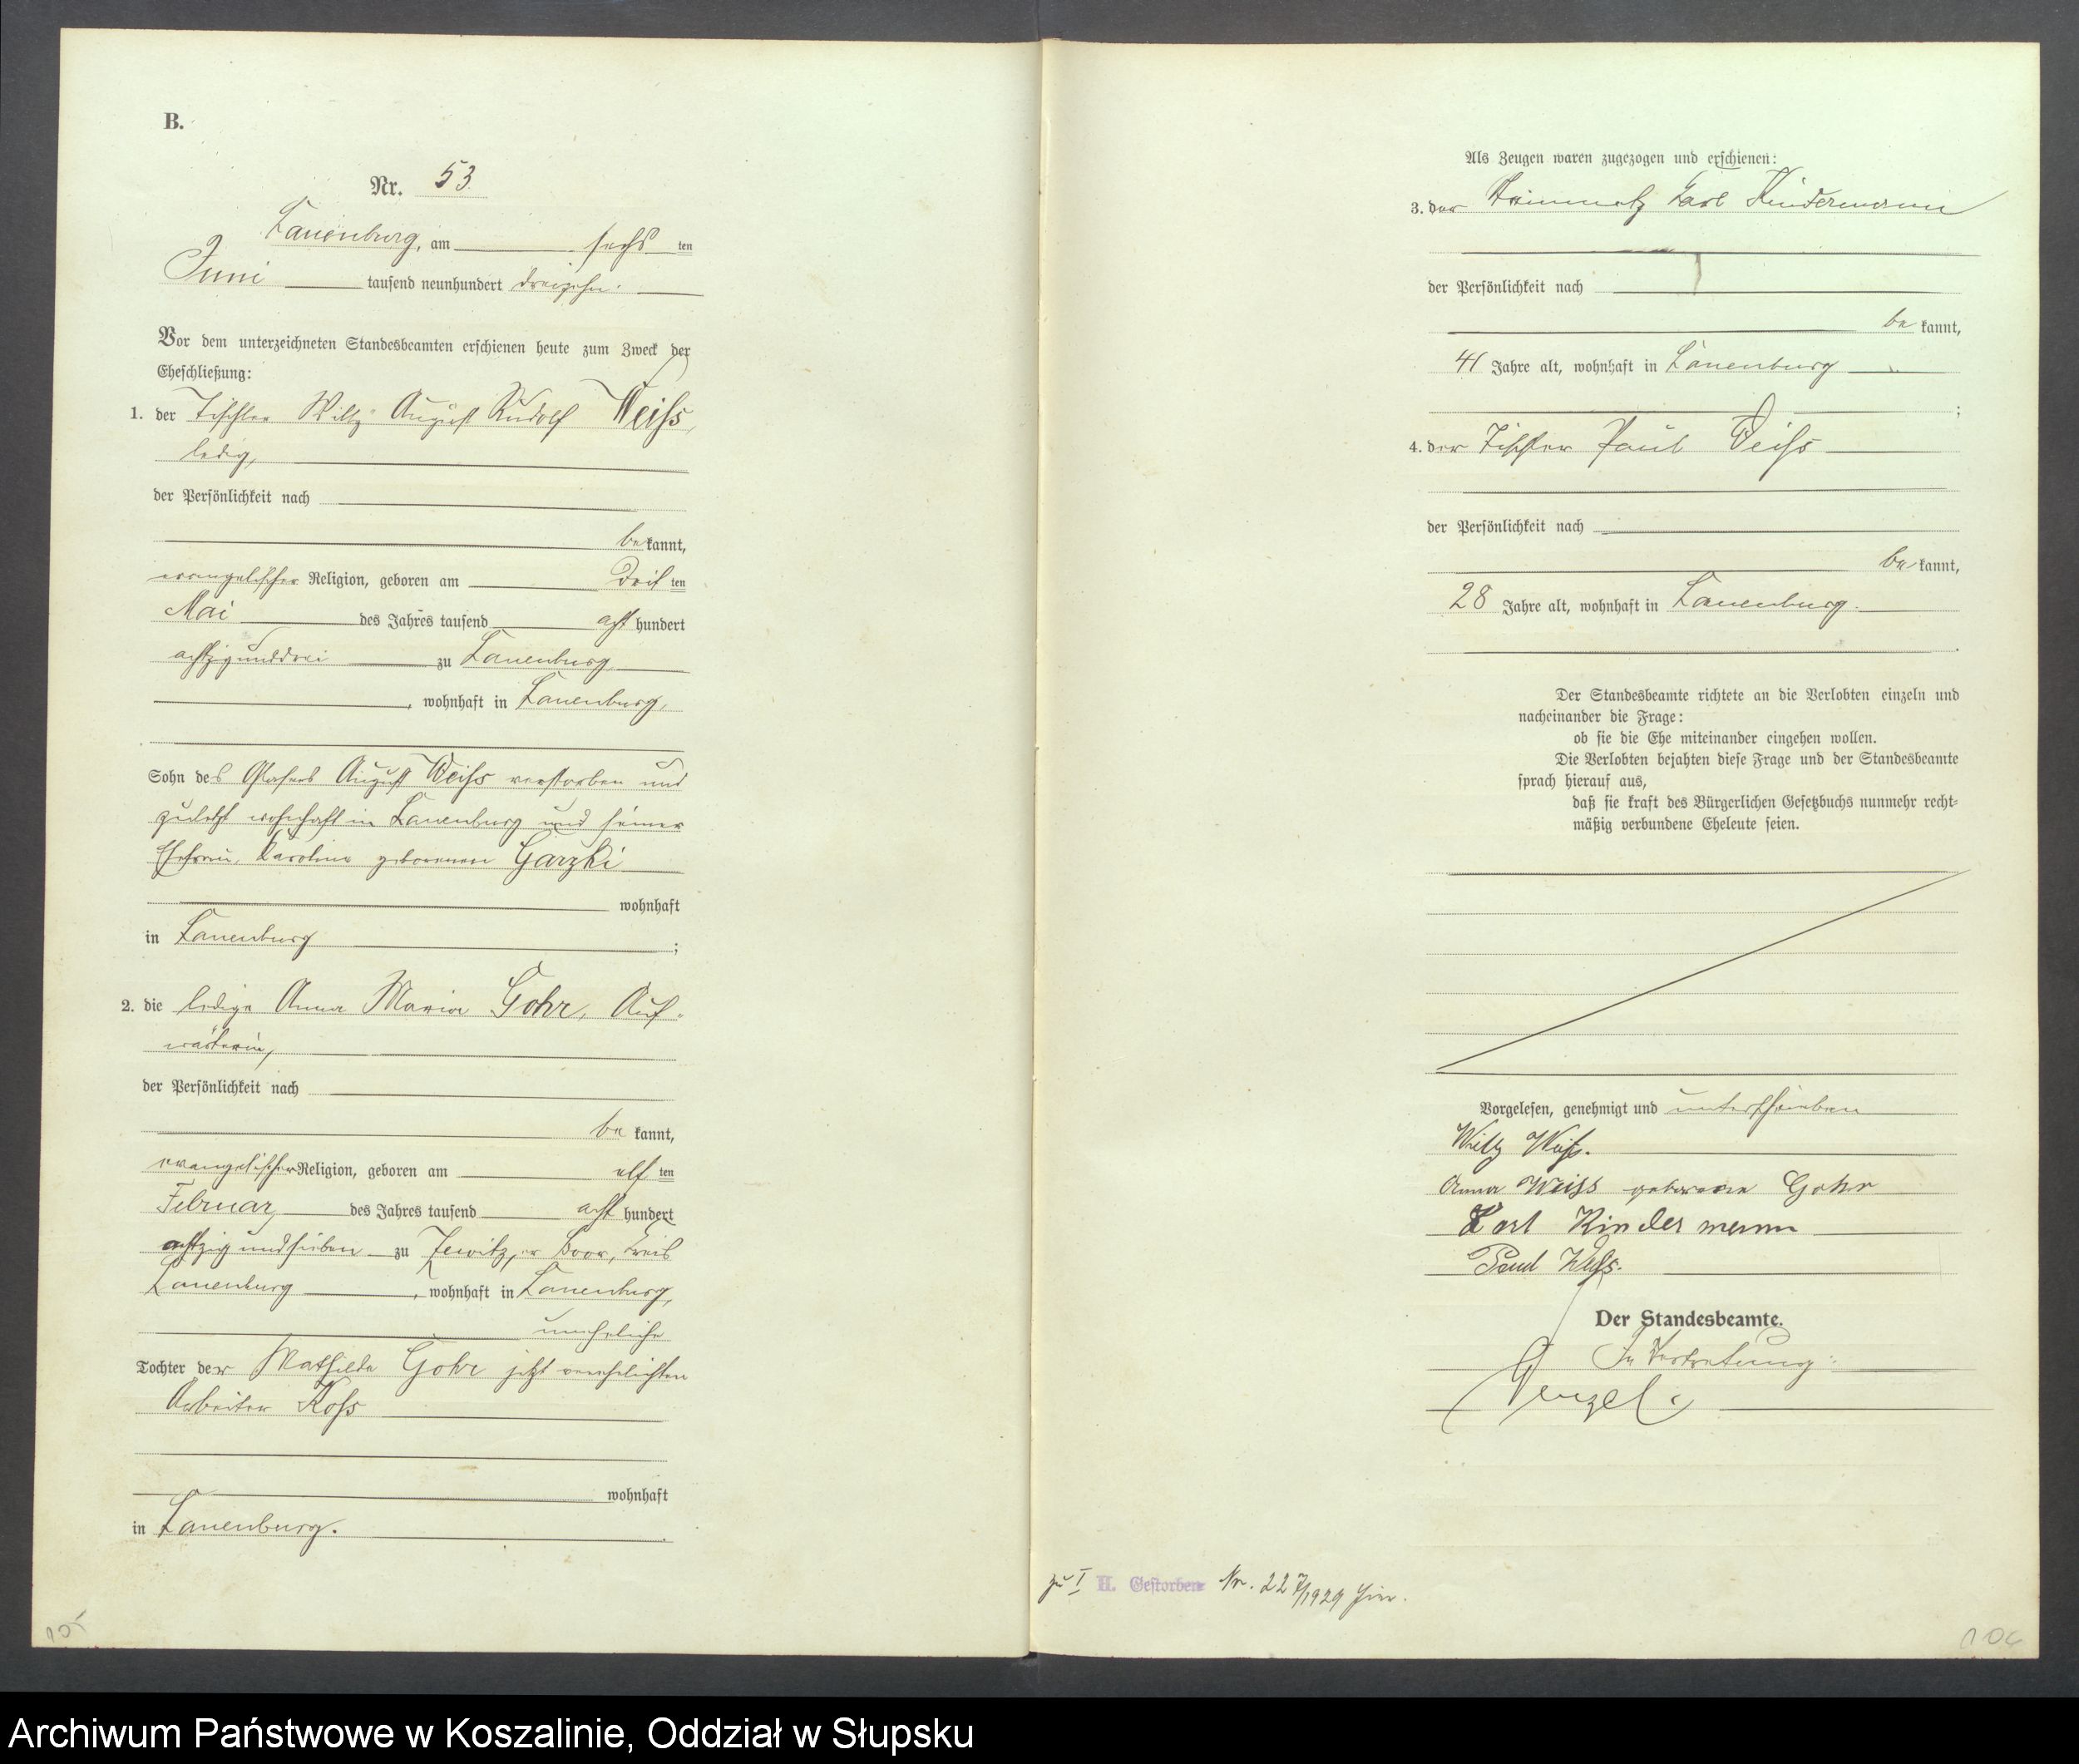 B.
Nr. 53
Lauenburg, am sechs ten
Juni tausend neunhundert dreizehn.
Vor dem unterzeichneten Standesbeamten erschienen heute zum Zweck der
Eheschließung:
1. der Tischler Willy August Rudolf Weiss,
ledig,
der Persönlichkeit nach
be kannt,
evangelischer Religion, geboren am drit ten
Mai des Jahres tausend acht hundert
achtzigunddrei zu Lauenburg
, wohnhaft in Lauenburg,
Sohn des Glasers August Weiss verstorben und
zuletzt wohnhaft in Lauenburg und seiner
Ehefrau, Karoline geborenen Garzki
wohnhaft
in Lauenburg ;
2. die ledige Anna Maria Gohr, Auf-
wärterin,
der Persönlichkeit nach
be kannt,
evangelischer Religion, geboren am elf ten
Februar des Jahres tausend acht hundert
achtzigundsieben zu Zewitz, Kreis
Lauenburg , wohnhaft in Lauenburg,
uneheliche
Tochter der Mathilde Gohr jetzt verehelichten
Arbeiter Koss
wohnhaft
in Lauenburg.
Als Zeugen waren zugezogen und erschienen:
3. der Karl Kindermann
der Persönlichkeit nach
be kannt,
41 Jahre alt, wohnhaft in Lauenburg
;
4. der Tischler Paul Weiss
der Persönlichkeit nach
be kannt,
28 Jahre alt, wohnhaft in Lauenburg.
Der Standesbeamte richtete an die Verlobten einzeln und
nacheinander die Frage:
ob sie die Ehe miteinander eingehen wollen.
Die Verlobten bejahten diese Frage und der Standesbeamte
sprach hierauf aus,
daß sie kraft des Bürgerlichen Gesetzbuchs nunmehr recht-
mäßig verbundene Eheleute seien.
Vorgelesen, genehmigt und unterschrieben
Willy Weiß.
Anna Weiss geborene Gohr
Karl Kindermann
Paul Weiss.
Der Standesbeamte.
In Vertretung:
Wenzel.
zu I H. Gestorben Nr. 227/1929
105
106
Archiwum Państwowe w Koszalinie, Oddział w Słupsku